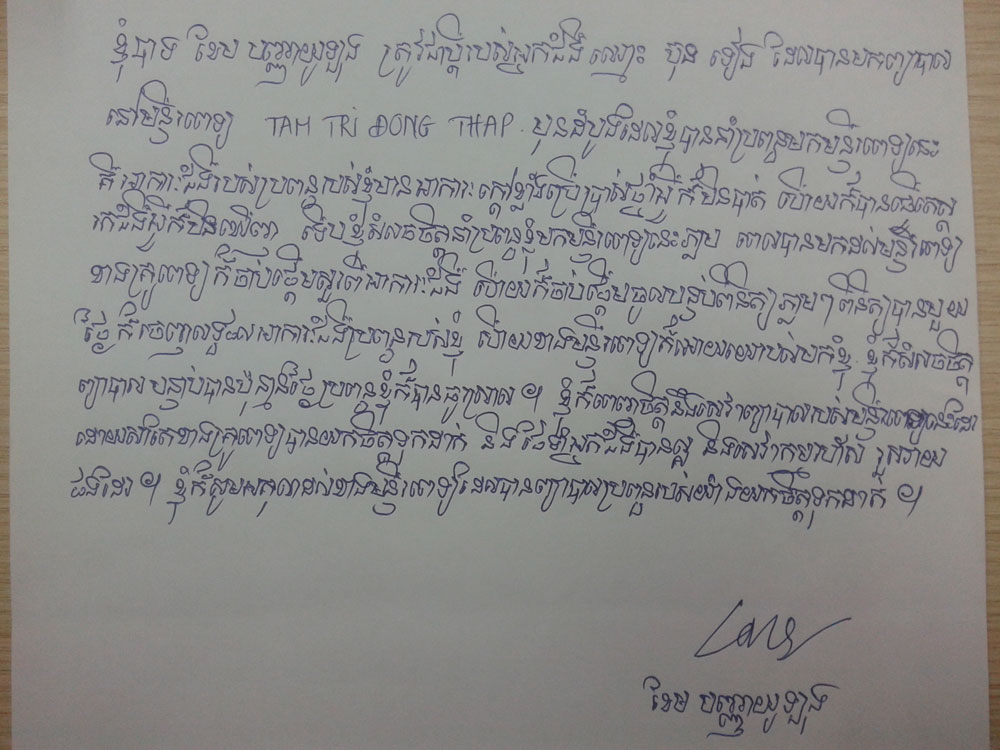 ខ្ញុំបាទ ខែម បញ្ញាយូឡុង ត្រូវជាប្ដីរបស់អ្នកជំងឺ ឈ្មោះ ហុន ទៀង ដែលបានមកព្យាបាល
នៅមន្ទីរពេទ្យ TAM TRI DONG THAP. មុនដំបូងដែលខ្ញុំបាននាំប្រពន្ធមកមន្ទីរពេទ្យនេះ
គឺ អាការៈជំងឺរបស់ប្រពន្ធរបស់ខ្ញុំមានអាការៈក្ដៅខ្លាំងប្រើប្រាស់ថ្នាំអ្វីក៏មិនបាត់ ហើយក៏បានធ្វើតេស្ត
រកជំងឺអ្វីក៏មិនឃើញ ទើបខ្ញុំសំរេចចិត្តនាំប្រពន្ធខ្ញុំមកមន្ទីរពេទ្យនេះភ្លាម ពេលបានមកដល់មន្ទីរពេទ្យ
ខាងគ្រូពេទ្យក៏ចាប់ផ្ដើមសួរពីអាការៈជំងឺ ហើយក៏ចាប់ផ្ដើមចូលបន្ទប់ពិនិត្យភ្លាមៗ ពិនិត្យបានមួយ
ថ្ងៃ ក៏ចេញលទ្ធផលអាការៈជំងឺប្រពន្ធរបស់ខ្ញុំ ហើយខាងមន្ទីរពេទ្យក៏អោយយោបល់មកខ្ញុំ ខ្ញុំក៏សំរេចចិត្ត
ព្យាបាល បន្ទាប់បានប៉ុន្មានថ្ងៃប្រពន្ធខ្ញុំក៏បានធូរស្រាល ។ ខ្ញុំក៏ពេញចិត្តនឹងសេវាព្យាបាលរបស់មន្ទីរពេទ្យនេះដែរ
ដោយសារតែខាងគ្រូពេទ្យបានយកចិត្តទុកដាក់ និងថែទាំអ្នកជំងឺបានល្អ និងសេវាកម្មរហ័ស រួសរាយ
ផងដែរ ។ ខ្ញុំក៏សូមអរគុណដល់ខាងមន្ទីរពេទ្យដែលបានព្យាបាលប្រពន្ធរបស់យ៉ាងយកចិត្តទុកដាក់ ។
ខែម បញ្ញាយូឡុង